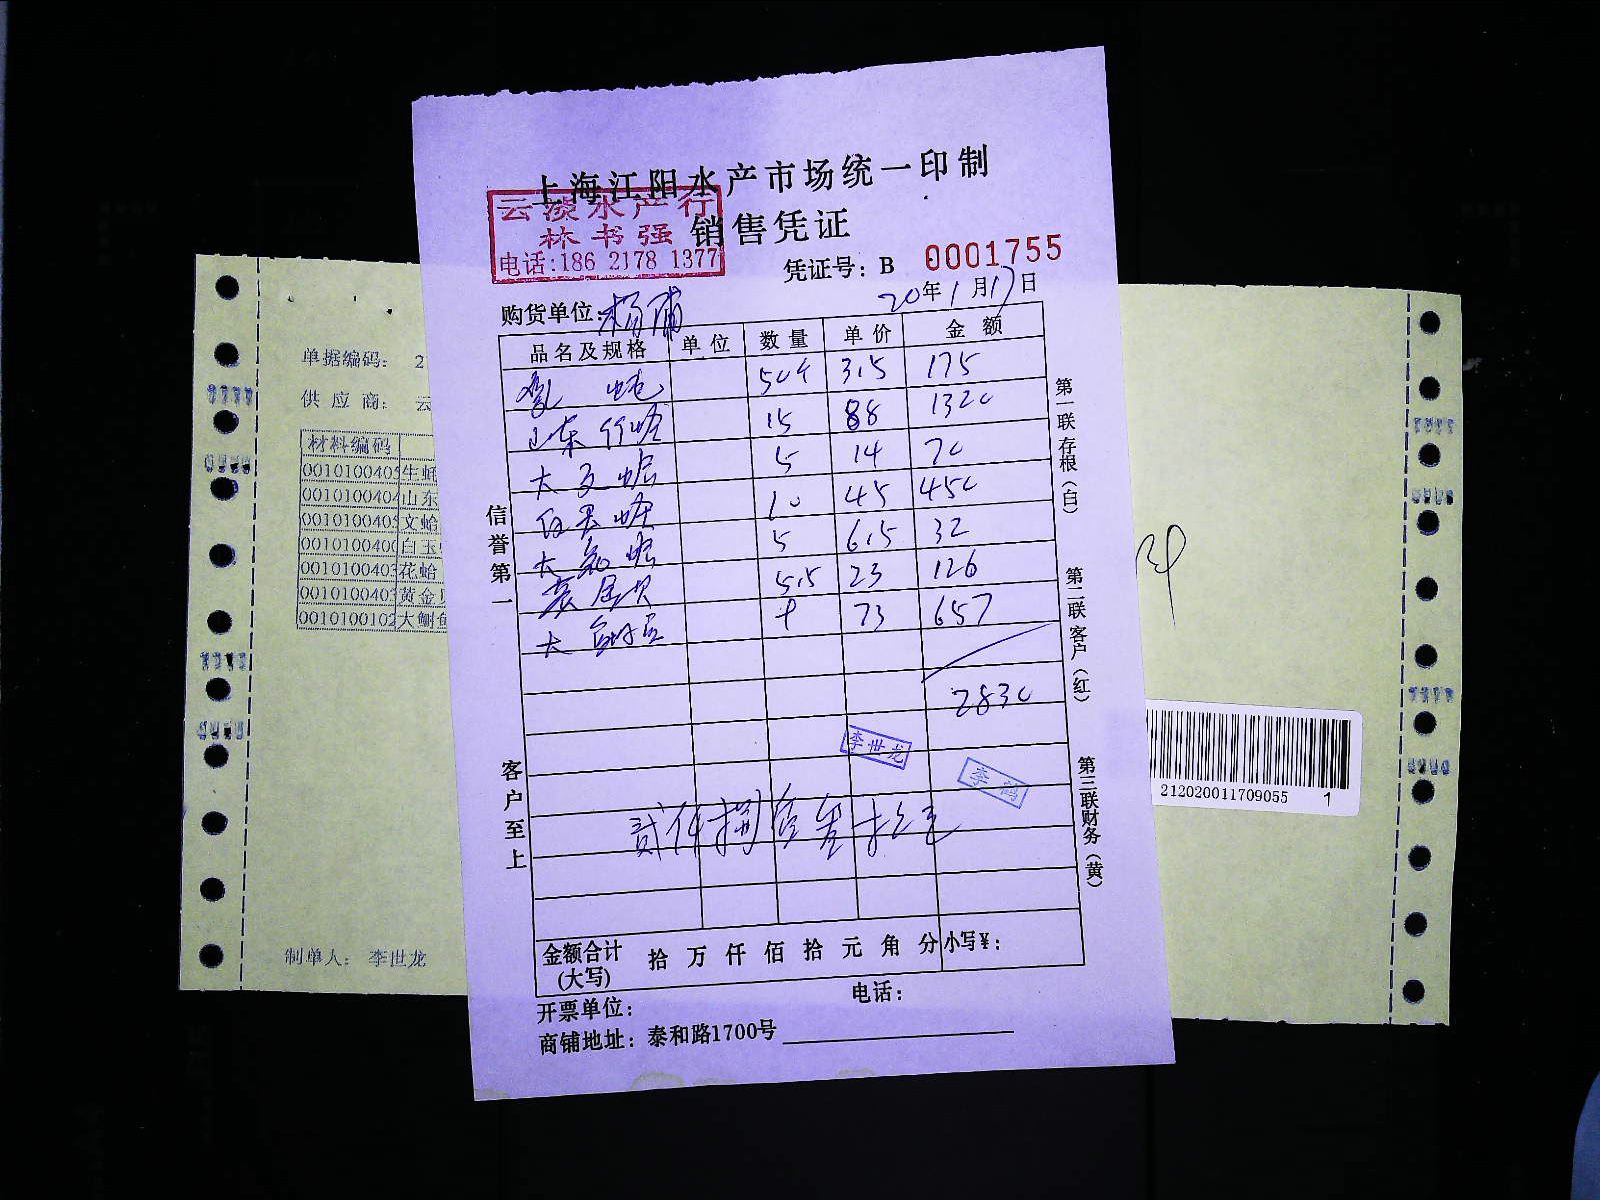 上海江阳水产市场统一印制
云淡水产行
林书强
电话:186 2178 1377
销售凭证
凭证号: B 0001755
购货单位: 杨浦
20年1月17日
品名及规格 单位 数量 单价 金额
50个 3.5 175
山东 15 88 1320
大文蛤 5 14 70
10 45 450
大花蛤 5 6.5 32
黄金贝 5.5 23 126
大 9 73 657
2830
李世龙
李鹤
贰仟捌佰叁拾元
金额合计
(大写)
拾 万 仟 佰 拾 元 角 分 小写¥:
开票单位:
电话:
商铺地址: 泰和路1700号
信誉第一
客户至上
第一联存根(白)
第二联客户(红)
第三联财务(黄)
单据编码: 2
供应商: 云
材料编码
0010100405 生蚝
0010100404 山东
0010100405 文蛤
0010100400 白玉
0010100403 花蛤
0010100403 黄金
0010100102 大鲫鱼
制单人: 李世龙
212020011709055 1